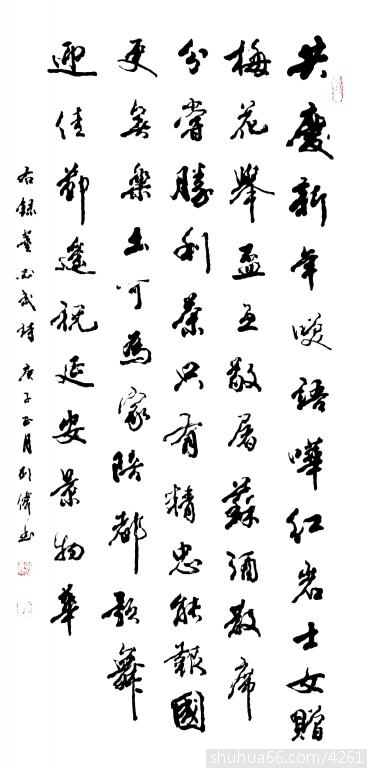 共慶新年咲語嘩紅岩士女贈
梅花舉盃互敬屠蘇酒散席
分嘗勝利茶只有精忠能報國
更無樂土可為家陪都歌舞
迎佳節遥祝延安景物華
右録董必武詩 庚子正月偉書
shuhua66.com/4261